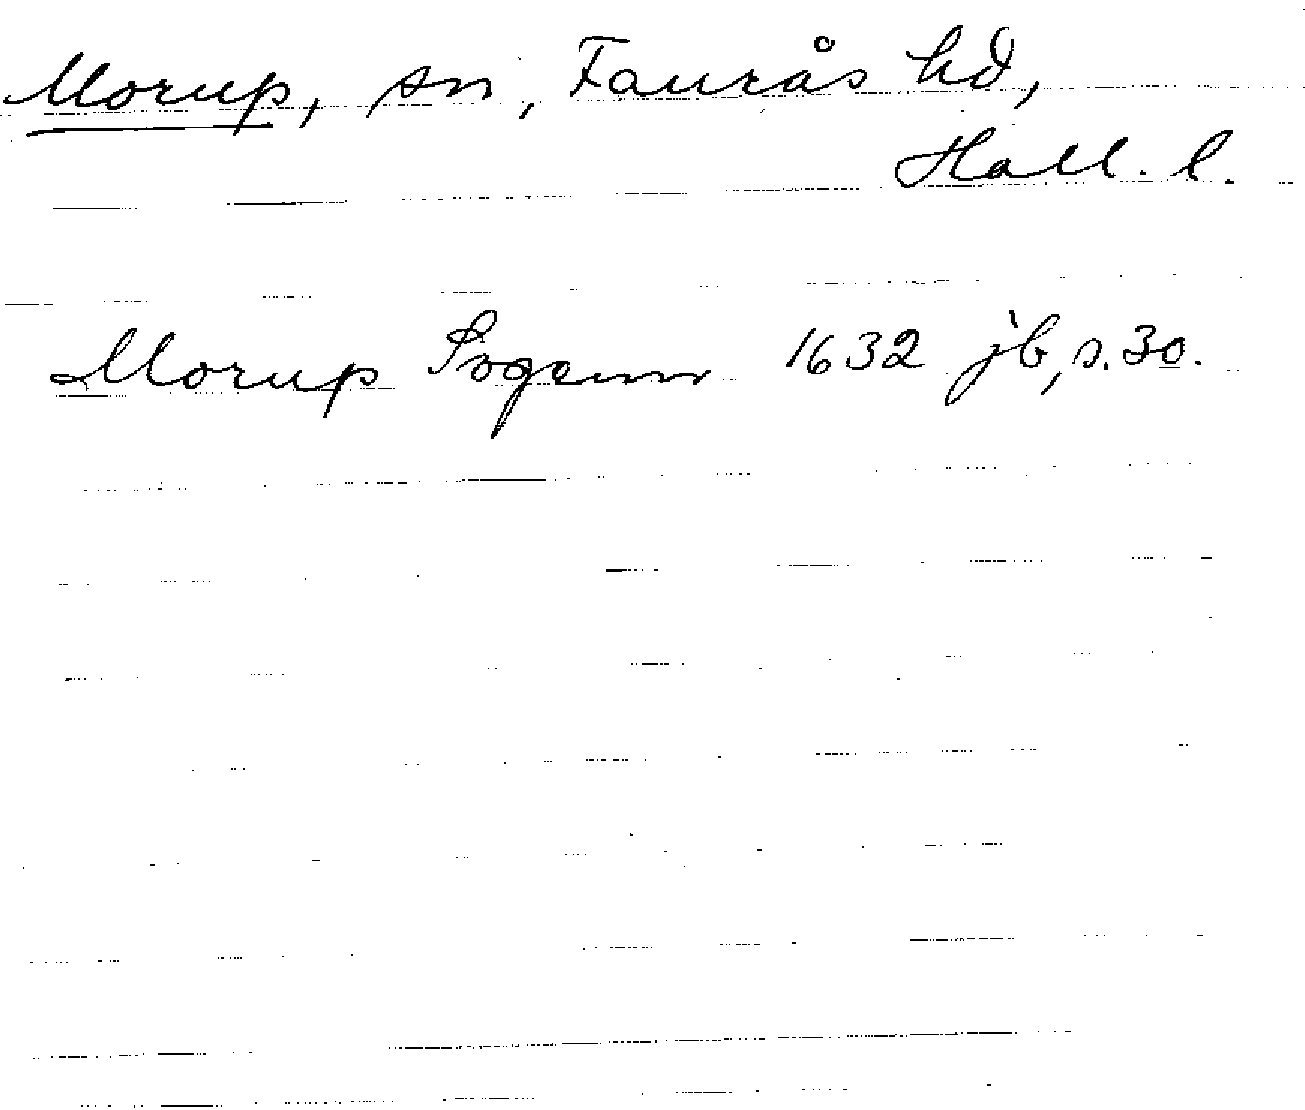 Morup, sn, Faurås hd,
Hall. l.
Morup Sogenn 1632 jb, s. 30.